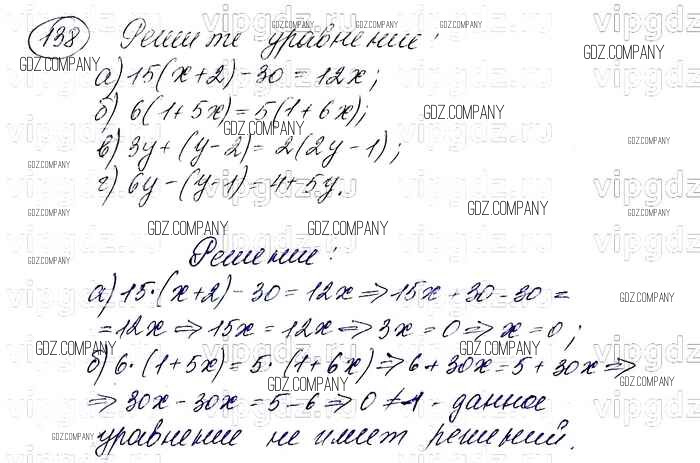 138 Решите уравнение:
а) 15(x+2)-30=12x;
б) 6(1+5x)=5(1+6x);
в) 3y+(y-2)=2(2y-1);
г) 6y-(y-1)=4+5y.
Решение:
а) 15·(x+2)-30=12x⇒15x+30-30=
=12x⇒15x=12x⇒3x=0⇒x=0;
б) 6·(1+5x)=5·(1+6x)⇒6+30x=5+30x⇒
⇒30x-30x=5-6⇒0≠-1 - данное
уравнение не имеет решений.